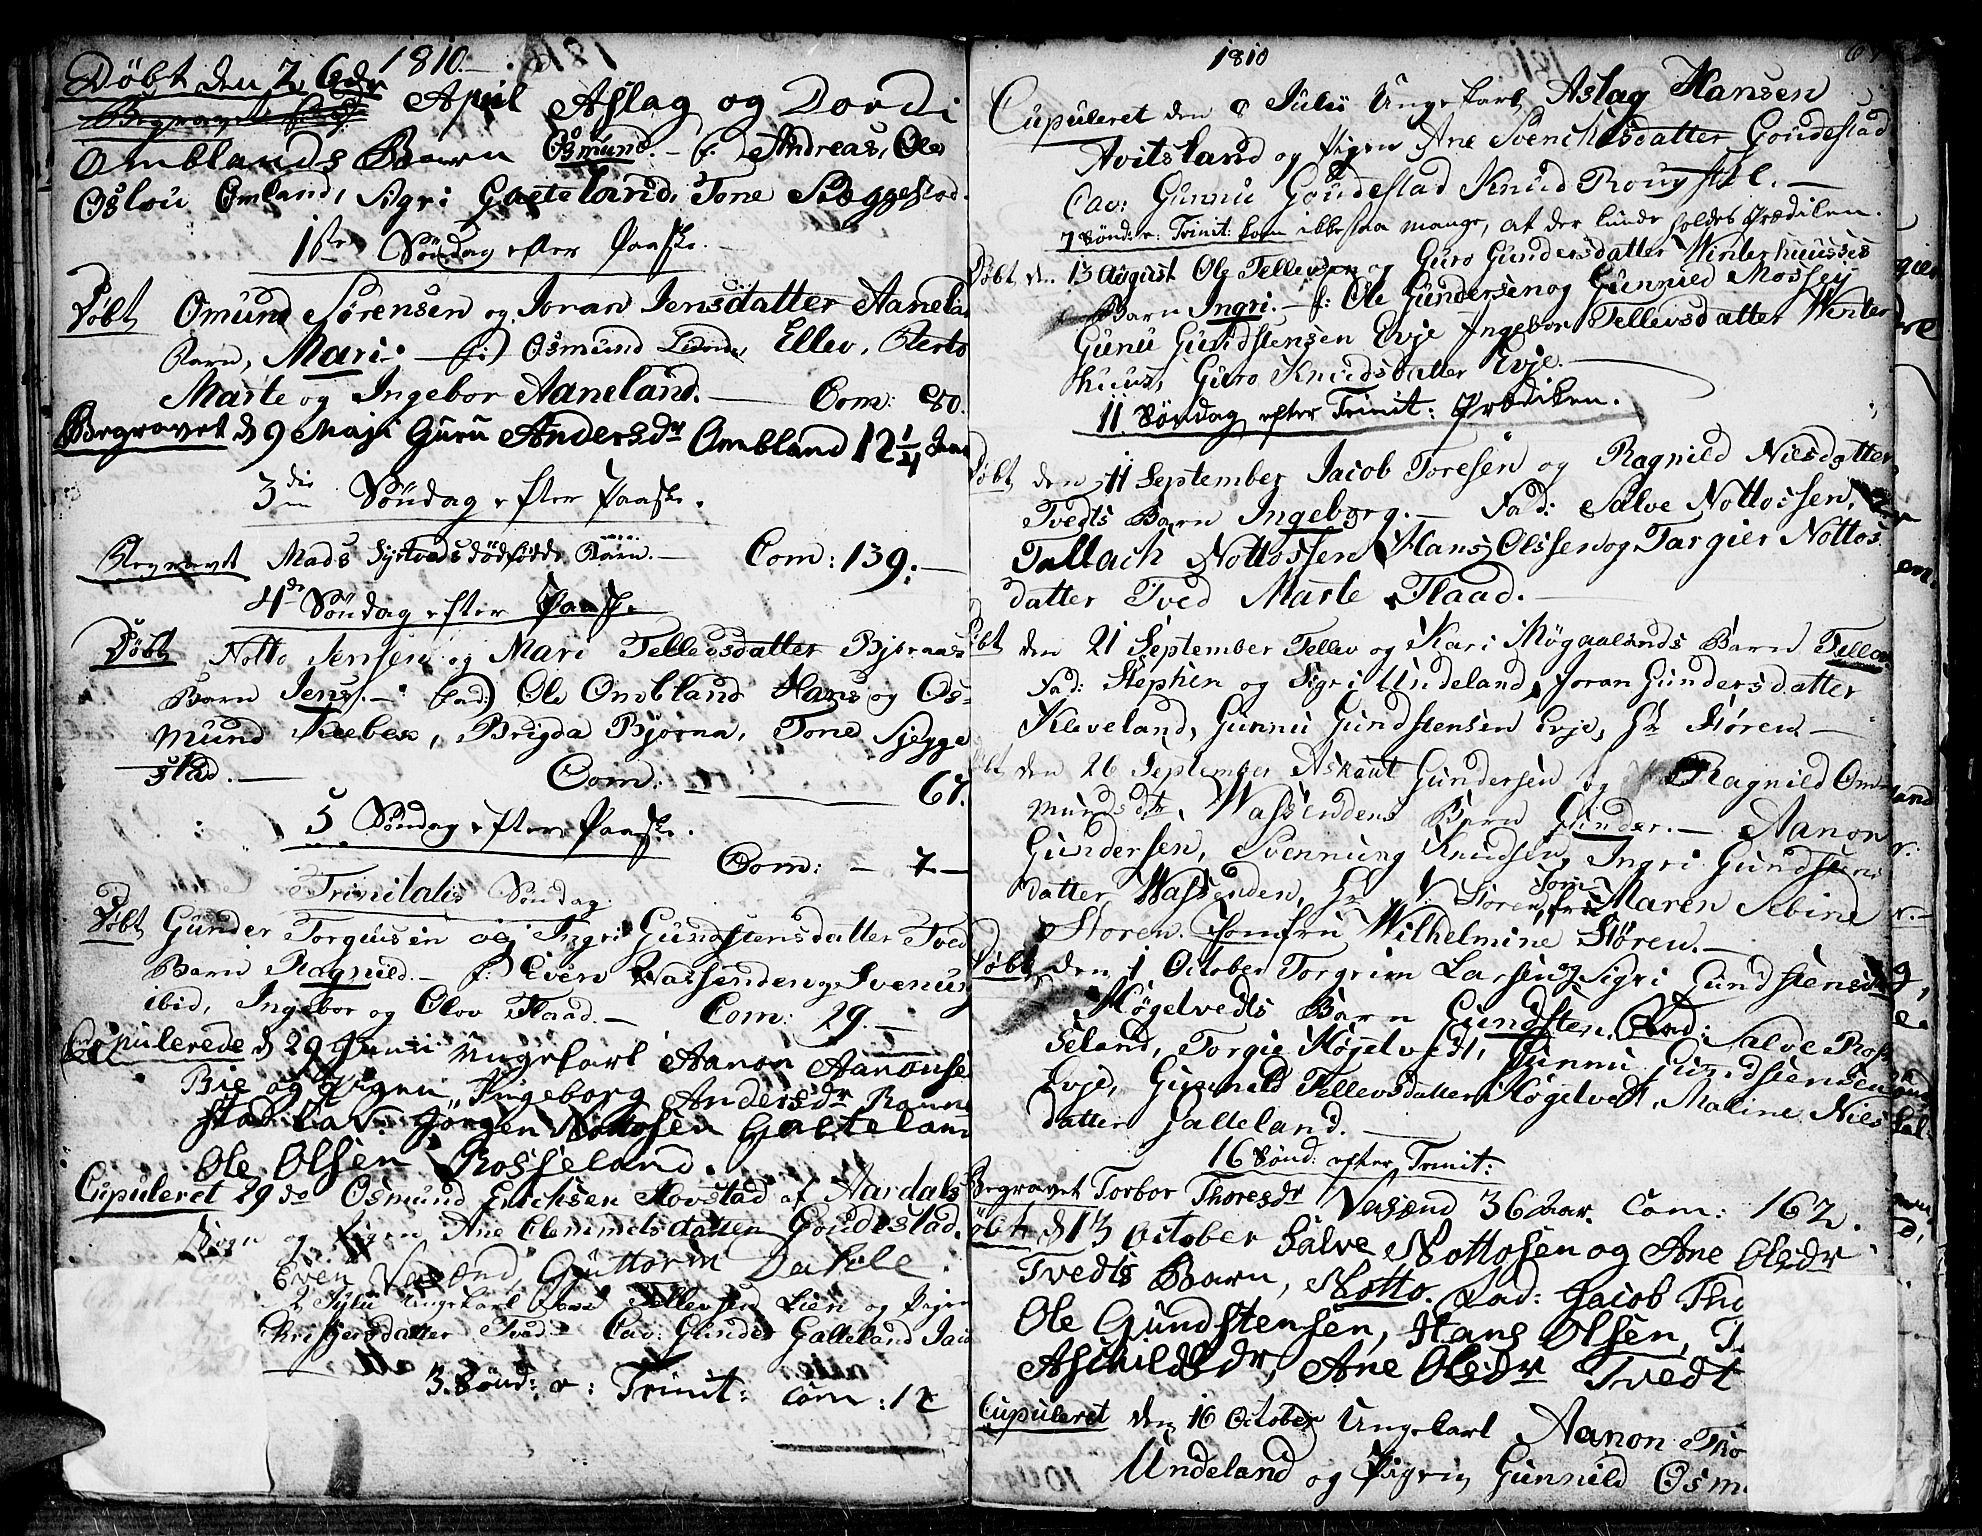 1810.
Döbt den 7. April Aslag og Dordi
Omblands Barn Osmund. - f: Andreas, Ole
Oslou Omland, Sigri Gaeteland, Tone
1ste Söndag efter Paaske.
Döbt Omund Sörensen og Joran Jensdatter Aanela
Barn, Mari. - f: Osmund Ellev,
Marte og Ingebor Aaneland. - Com: 80.
Begravet d 9 Maji Guru Andersdr Ombland 12 1/4 Jaar
3die Söndag efter Paaske.
Begravet Mads dödfödde Barn. - Com: 139. -
4de Söndag efter Paaske
Döbt Notto Jensen og Mari Tellevsdatter Bjoraas
Barn Jens. - fad: Ole Ombland Hans og Os-
mund Brigda Bjoraa, Tone Sjegge
stad. - Com: - 67.
5 Söndag efter Paaske.
Com: - 7 -
Trinitatis Söndag
Döbt Gunder Torgiusen og Ingri Gundstensdatter Tved
Barn Ragnild. - f: Even Wassenden og Svenus
ibid, Ingebor og Olov Flaad. - Com: 29. -
Copulerede d 29 Juni Ungekarl Aanon Aanonse
Bie og Pigen Ingeborg Andersdr
stad Cav: Jörgen Nottosen Gaeteland
Ole Olsen Rosseland.
Cupuleret 29 do Osmund Erichsen Hovstad af Aardals
Sogn og Pigen Ane Clemmetsdatter Goudestad.
Even Guttorm
2 Julii Ungekarl Tellevsen Lien og Pigen
datter Tvad - Cav: Gunder Galteland
3. Sönd: e: Trinit: Com: 12
1810
Cupuleret den 8 Julii Ungekarl Aslag Hansen
Avitsland og Pigen Ane Svenchesdatter Goudestad
Cav: Gunnu Goudestad Knud -
7 Sönd: e: Trinit: kom ikke saa mange, at der kunde holdes Prædiken.
Döbt den 13 August Ole Tellevsen og Guro Gundersdatter Winterhuuses
Barn Ingri. - f: Ole Gundersen og Gunnild
Gunu Gundstensen Evje Ingebor Tellevsdatter Winter
huus, Guro Knudsdatter Evje. -
11. Söndag efter Trinit: Prædiken.
Döbt den 11 September Jacob Toresen og Ragnild Nilsdatter
Tvedts Barn Ingeborg. - Fad: Salve Nottossen,
Tallach Nottossen, Hans Olssen og Targier Nottos
datter Tved Marte Flaad. -
Döbt den 21 September Tellev og Kari Mögaalands Barn
Fad: Stephen og Sigri Undeland, Joran Gundersdatter
Kleveland, Gunnu Gundstensen Evje, Hr Stören -
Döbt den 26 September Askaut Gundersen og Ragnild Om
mundsdtr Wassendens Barn Gunder. - Aanon
Gundersen, Svennung Knudsen, Ingri Gundstens
datter Wassenden, Hr Stören, Maren Sebine
Stören. Jomfru Wilhelmine Stören. -
Döbt den 1 October Torgrim Larsen og Sigri Gundstensd
Högelvedts Barn Gundsten. Fad: Salve Ros
seland, Torgie Högelvedt, Gunnu Gundstensen
Evje, Gunnild Tellevsdatter Högelvedt, Maline Niels
datter Galteland. -
16 Sönd: efter Trinit:
Begravet Torbor Thoresdr 36 Aar. Com: 162.
Döbt d 13 October Salve Nottosen og Ane Olsdr
Tvedts Barn, Notto. Fad: Jacob Tho
Ole Gundstensen, Hans Olsen, T
Aschildsdr, Ane Olsdr Tvedt
Cupuleret den 16 October Ungekarl Aanon Tho
Undeland og Pigen Gunnild Osm